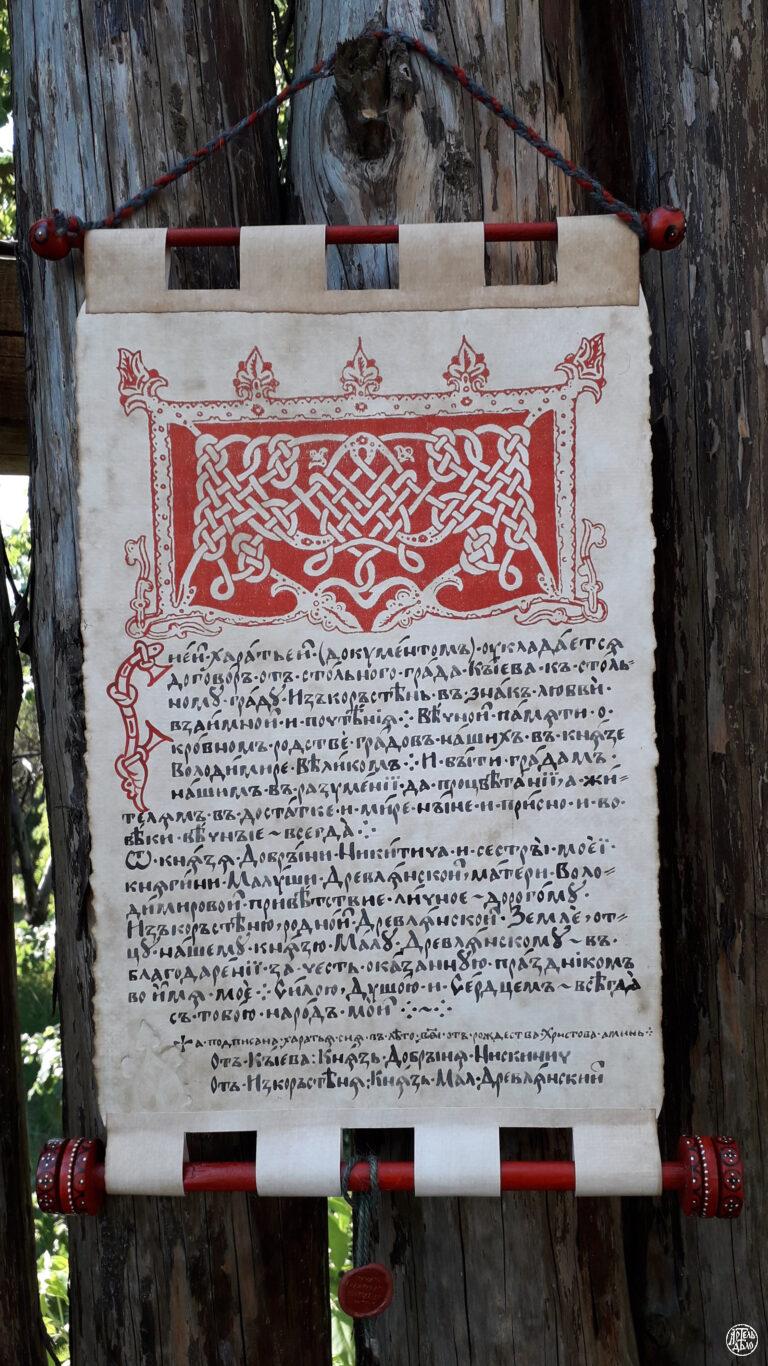 Сне́й·Хара́тьей·(докуме́нтомъ)·оукладае́тся
договоръ·отъ·сто́льного·гра́да·Кы́ева·къ·столь-
ному·граду·Изъкоръстѣнь·въ·зна́къ·любви·
взаи́мной·и·почте́нія·:·Вѣчной·па́мяти·о·
кро́вномъ·родствѐ·градовъ·нашихъ·въ·кня́зе
Володи́мире·Вели́комъ·:·И·бы́ти·гра́дамъ·
на́шимъ·въ·разуме́нїї·да·процвѣта́нїї,·а·жи́-
телямъ·въ·доста́тке·и·ми́ре·ны́не·и·при́сно·и·во·
вѣки·вѣ́чные~всегда̀·:·
Ѿ·кня́зя·Добры́ни·Ники́тича·и·сестры̀·мое́ї·
княги́ни·Малу́ши·Древля́нской,·ма́тери·Воло-
ди́мировой·привѣ́тствие·ли́чное~дорого́му·
Изъкоръстѣ́ню,·родно́й·Древля́нской·Земле́,·от-
цу·нашему·кня́зю·Малу·Древля́нскому~въ·
благодаре́нїї·за·честь·ока́занную·пра́зднікомъ
во·и́мя·моѐ·:·Си́лою,·Душо́ю·и·Се́рдцемъ~всѣгда̀
съ·тобо́ю·наро́дъ·мой·:·~·:·
а·подписана·харатья·сия·въ·лѣто·отъ·рождества·Христова·аминь·:·
Отъ·Кы́ева:·Кня́зь·Добры́ня·Нискинич
Отъ·Изкоръстѣня:·Кня́зь·Мал·Древля́нский
Артель
Дѣло